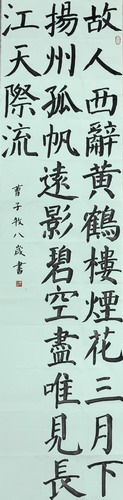 故人西辭黃鶴樓煙花三月下
揚州孤帆遠影碧空盡唯見長
江天際流
曹子牧八歲書